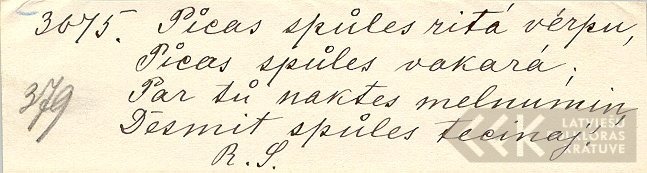 3675. Pîcas spûles ritá vérpu,
Pîcas spûles vakará;
379 Par tû naktes melnumiņ
Désmit spûles tecinaj.
R. S.
LATVIEŠU
FOLKLORAS
KRATUVE